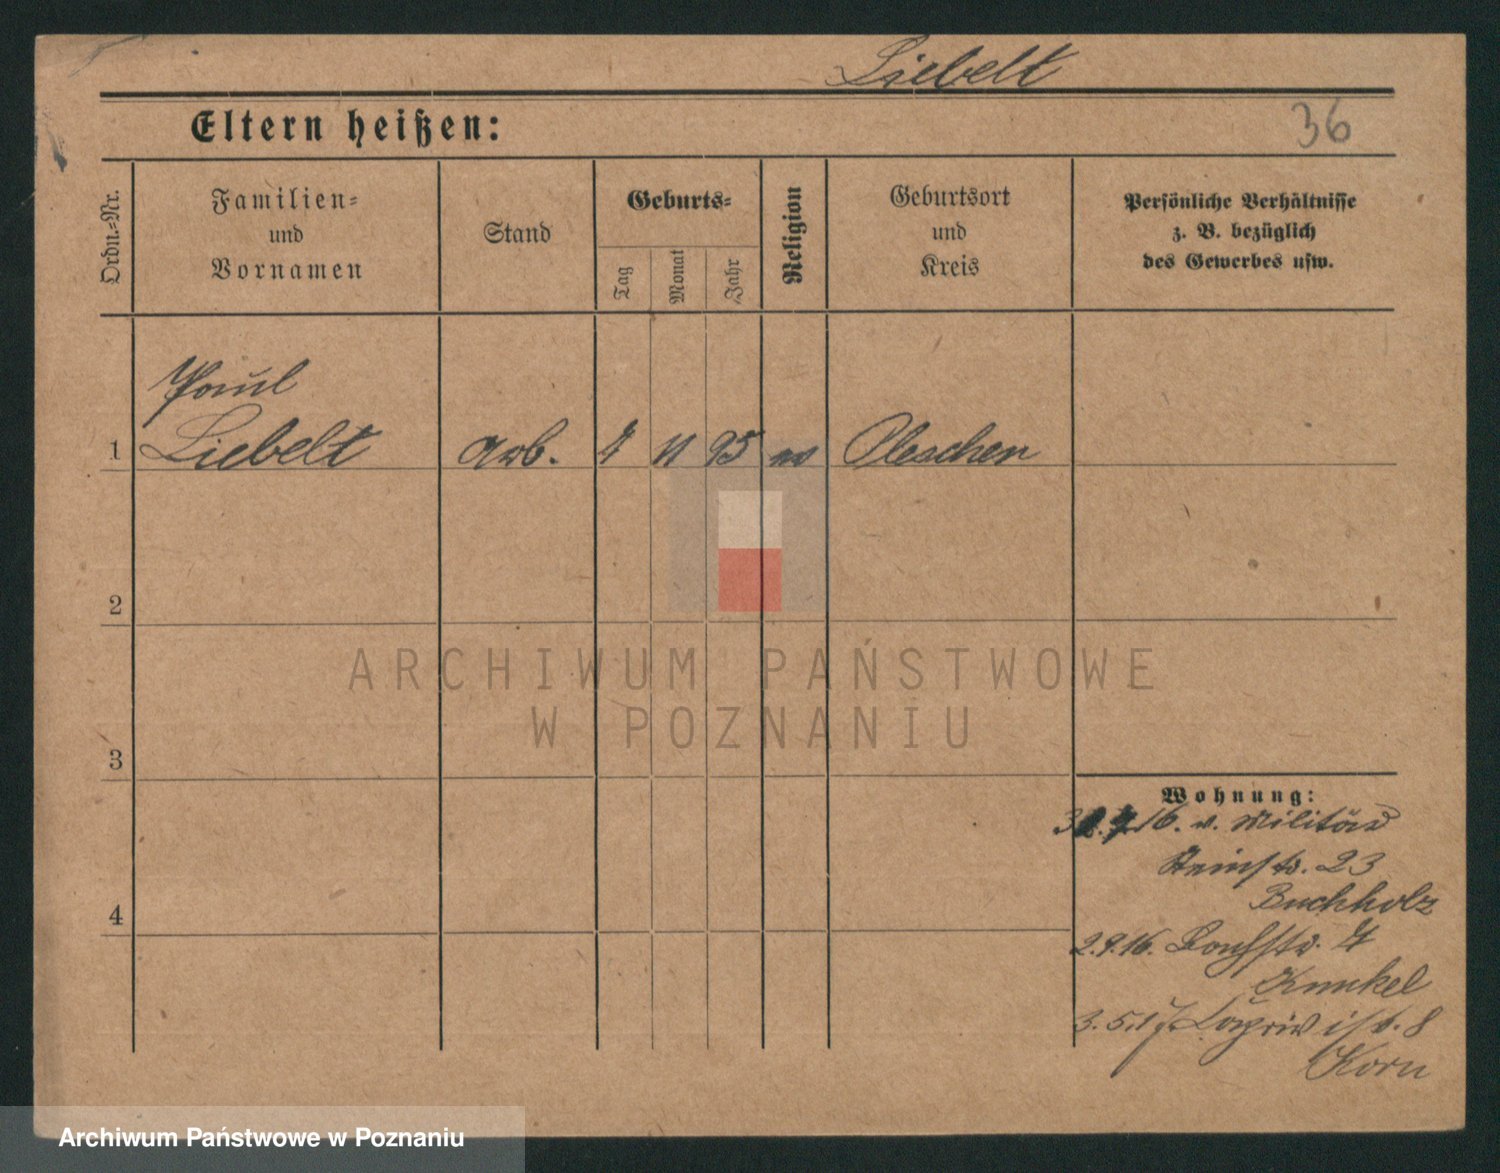 Liebelt
Eltern heißen:
36
Ordn.-Nr.
Familien-
und
Vornamen
Stand
Geburts-
Tag
Monat
Jahr
Religion
Geburtsort
und
Kreis
Persönliche Verhältnisse
z. B. bezüglich
des Gewerbes usw.
Paul
1 Liebelt Arb. 4 11 95 ev Pleschen
2
ARCHIWUM PAŃSTWOWE
W POZNANIU
3
Wohnung:
16. v. Militär
23
Buchholz
4
2.9.16. 4
Kunkel
3.5.17 8
Korn
Archiwum Państwowe w Poznaniu